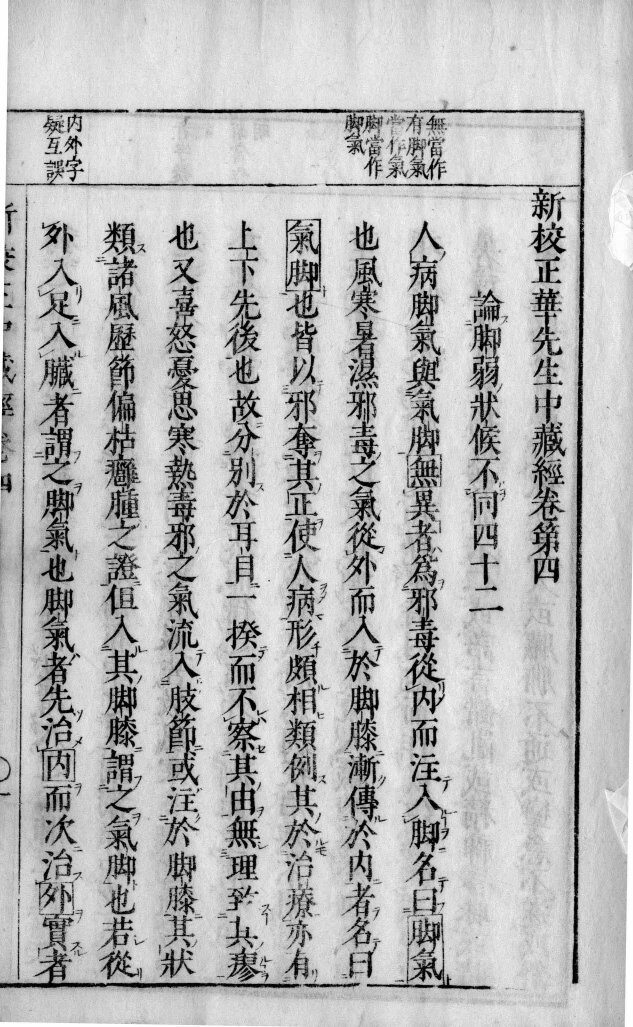 無當作
有脚氣
當作氣
脚當作
脚氣
內外字
疑互誤
新校正華先生中藏經卷第四
論脚弱狀候不同四十二
人病脚氣與氣脚無異者爲邪毒從內而注入脚名曰脚氣
也風寒暑濕邪毒之氣從外而入於脚膝漸傳於內者名曰
氣脚也皆以邪奪其正使人病形頗相類例其於治療亦有
上下先後也故分別於耳目一揆而不察其由無理致其瘳
也又喜怒憂思寒熱毒邪之氣流入肢節或注於脚膝其狀
類諸風歷節偏枯癰腫之證但入其脚膝謂之氣脚也若從
外入足入臟者謂之脚氣也脚氣者先治內而次治外實者